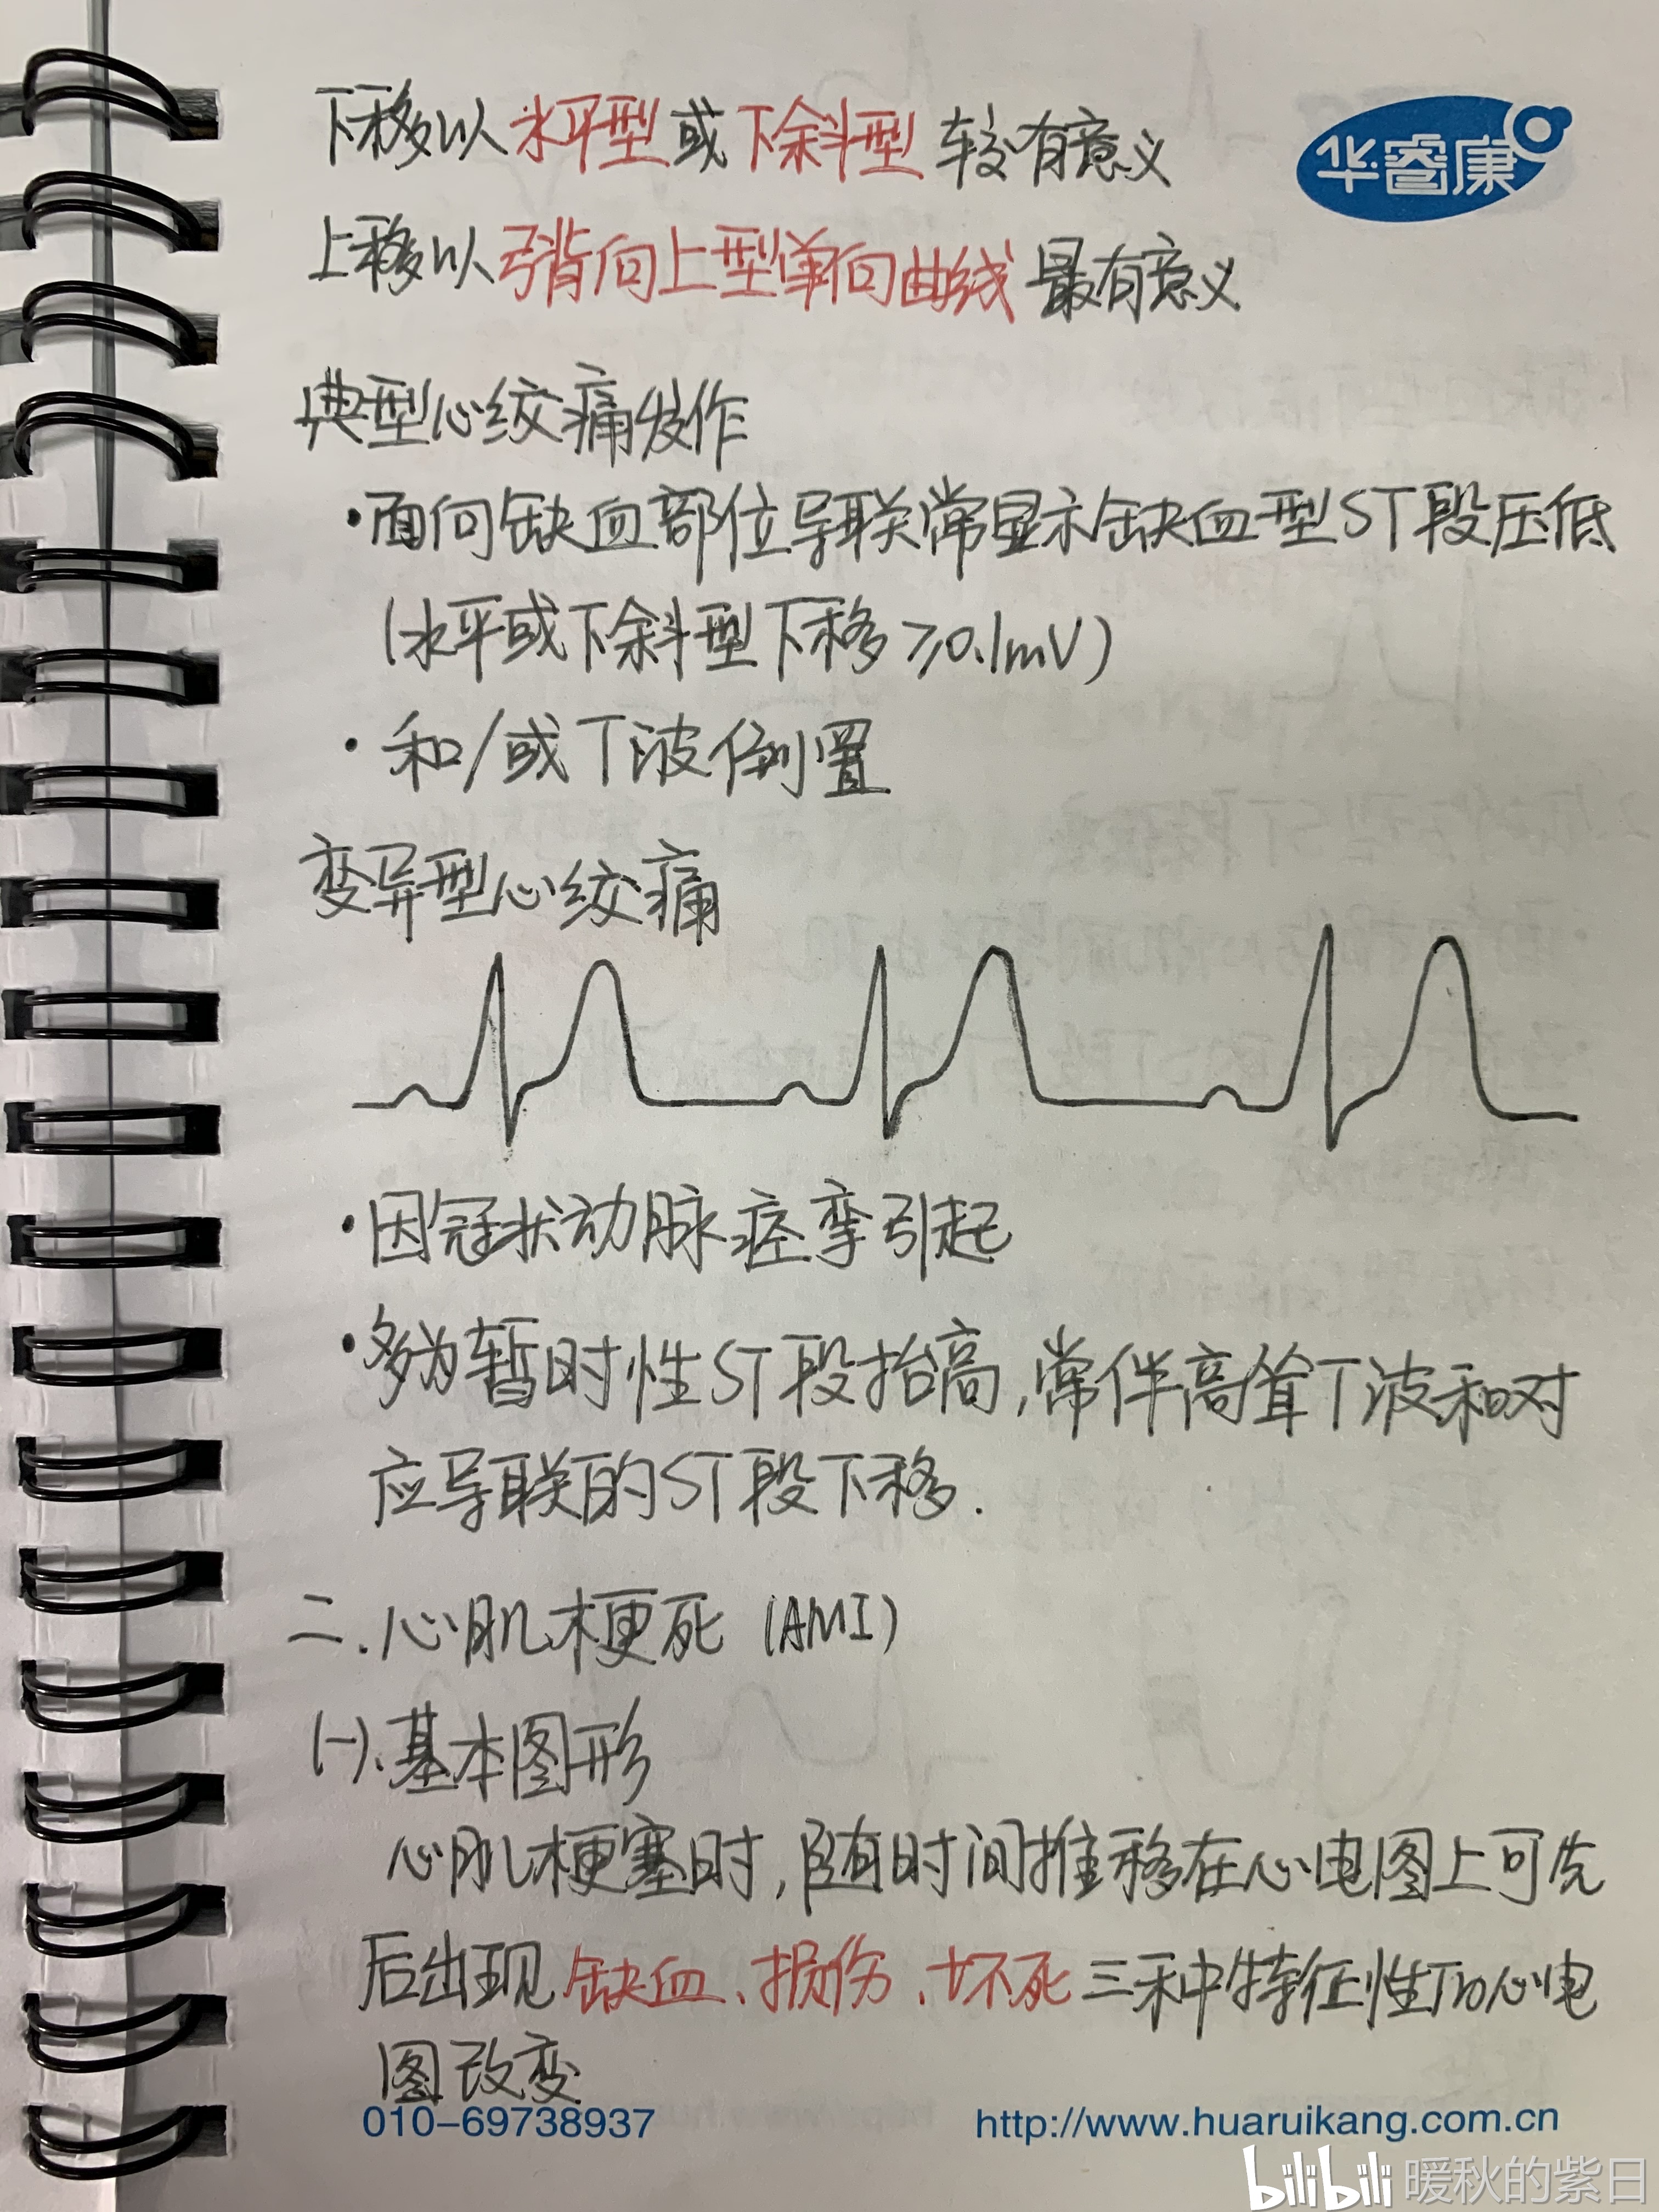 下移以水平型或下斜型较有意义
华睿康
上移以弓背向上型单向曲线最有意义
典型心绞痛发作
·面向缺血部位导联常显示缺血型ST段压低
(水平或下斜型下移≥0.1mV)
·和/或T波倒置
变异型心绞痛
·因冠状动脉痉挛引起
·多为暂时性ST段抬高,常伴高耸T波和对
应导联的ST段下移.
二.心肌梗死(AMI)
(一).基本图形
心肌梗塞时,随时间推移在心电图上可先
后出现缺血、损伤、坏死三种特征性的心电
图改变
010-69738937
http://www.huaruikang.com.cn
bilibili 暖秋的紫日